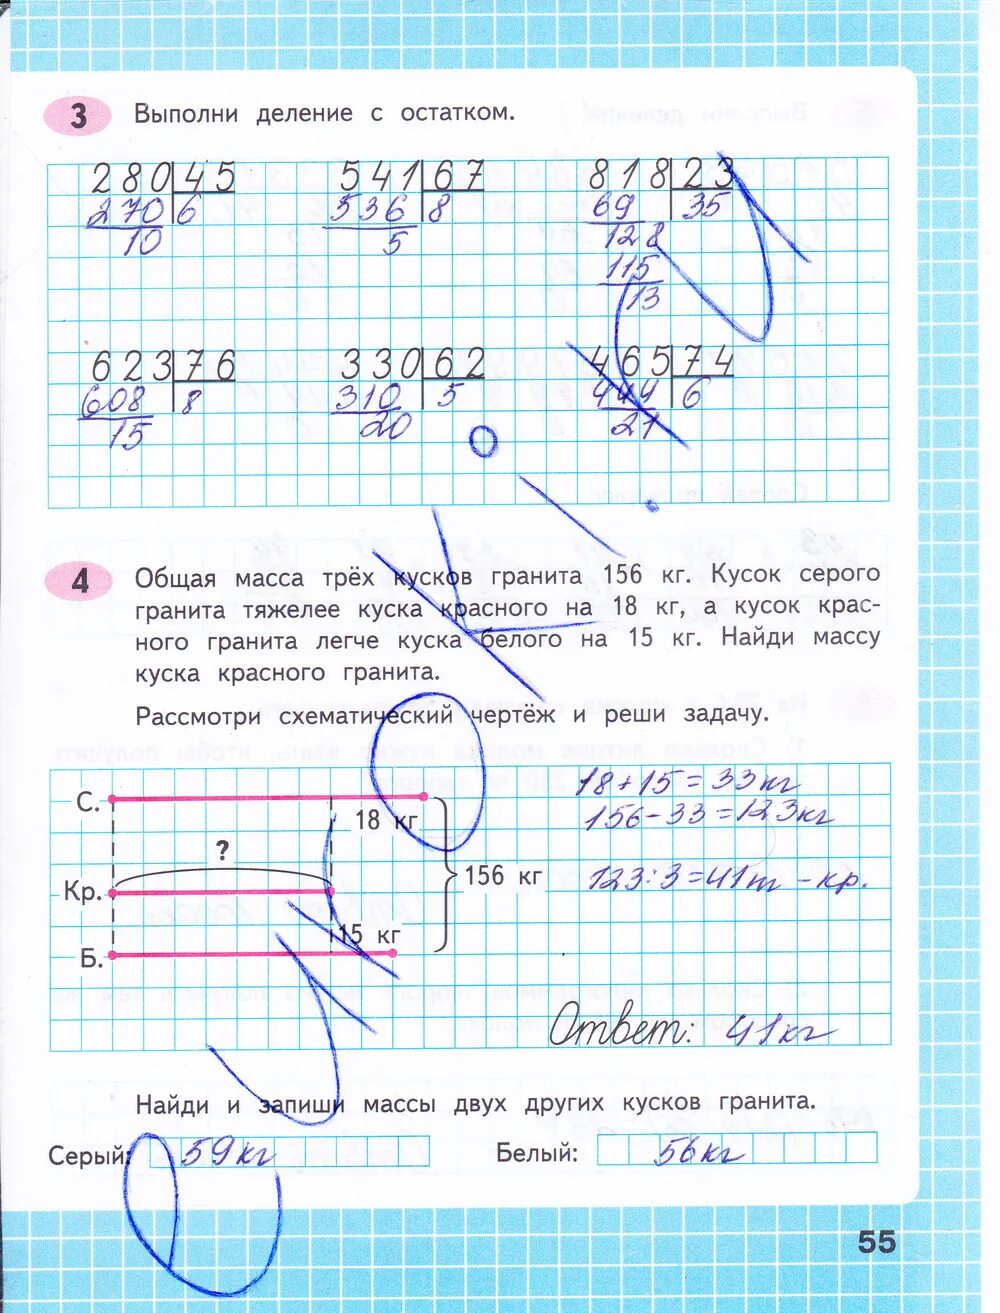 3 Выполни деление с остатком.
280 45 541 67 818 23
270 6 536 8 69 35
10 5 128
115
13
623 76 330 62 465 74
608 8 310 5 444 6
15 20 21
4 Общая масса трёх кусков гранита 156 кг. Кусок серого
гранита тяжелее куска красного на 18 кг, а кусок крас-
ного гранита легче куска белого на 15 кг. Найди массу
куска красного гранита.
Рассмотри схематический чертёж и реши задачу.
С. 18 кг
? 156 кг
Кр.
15 кг
Б.
18+15=33кг
156-33=123кг
123:3=41т - кр.
Ответ: 41кг
Найди и запиши массы двух других кусков гранита.
Серый: 59кг Белый: 56кг
55